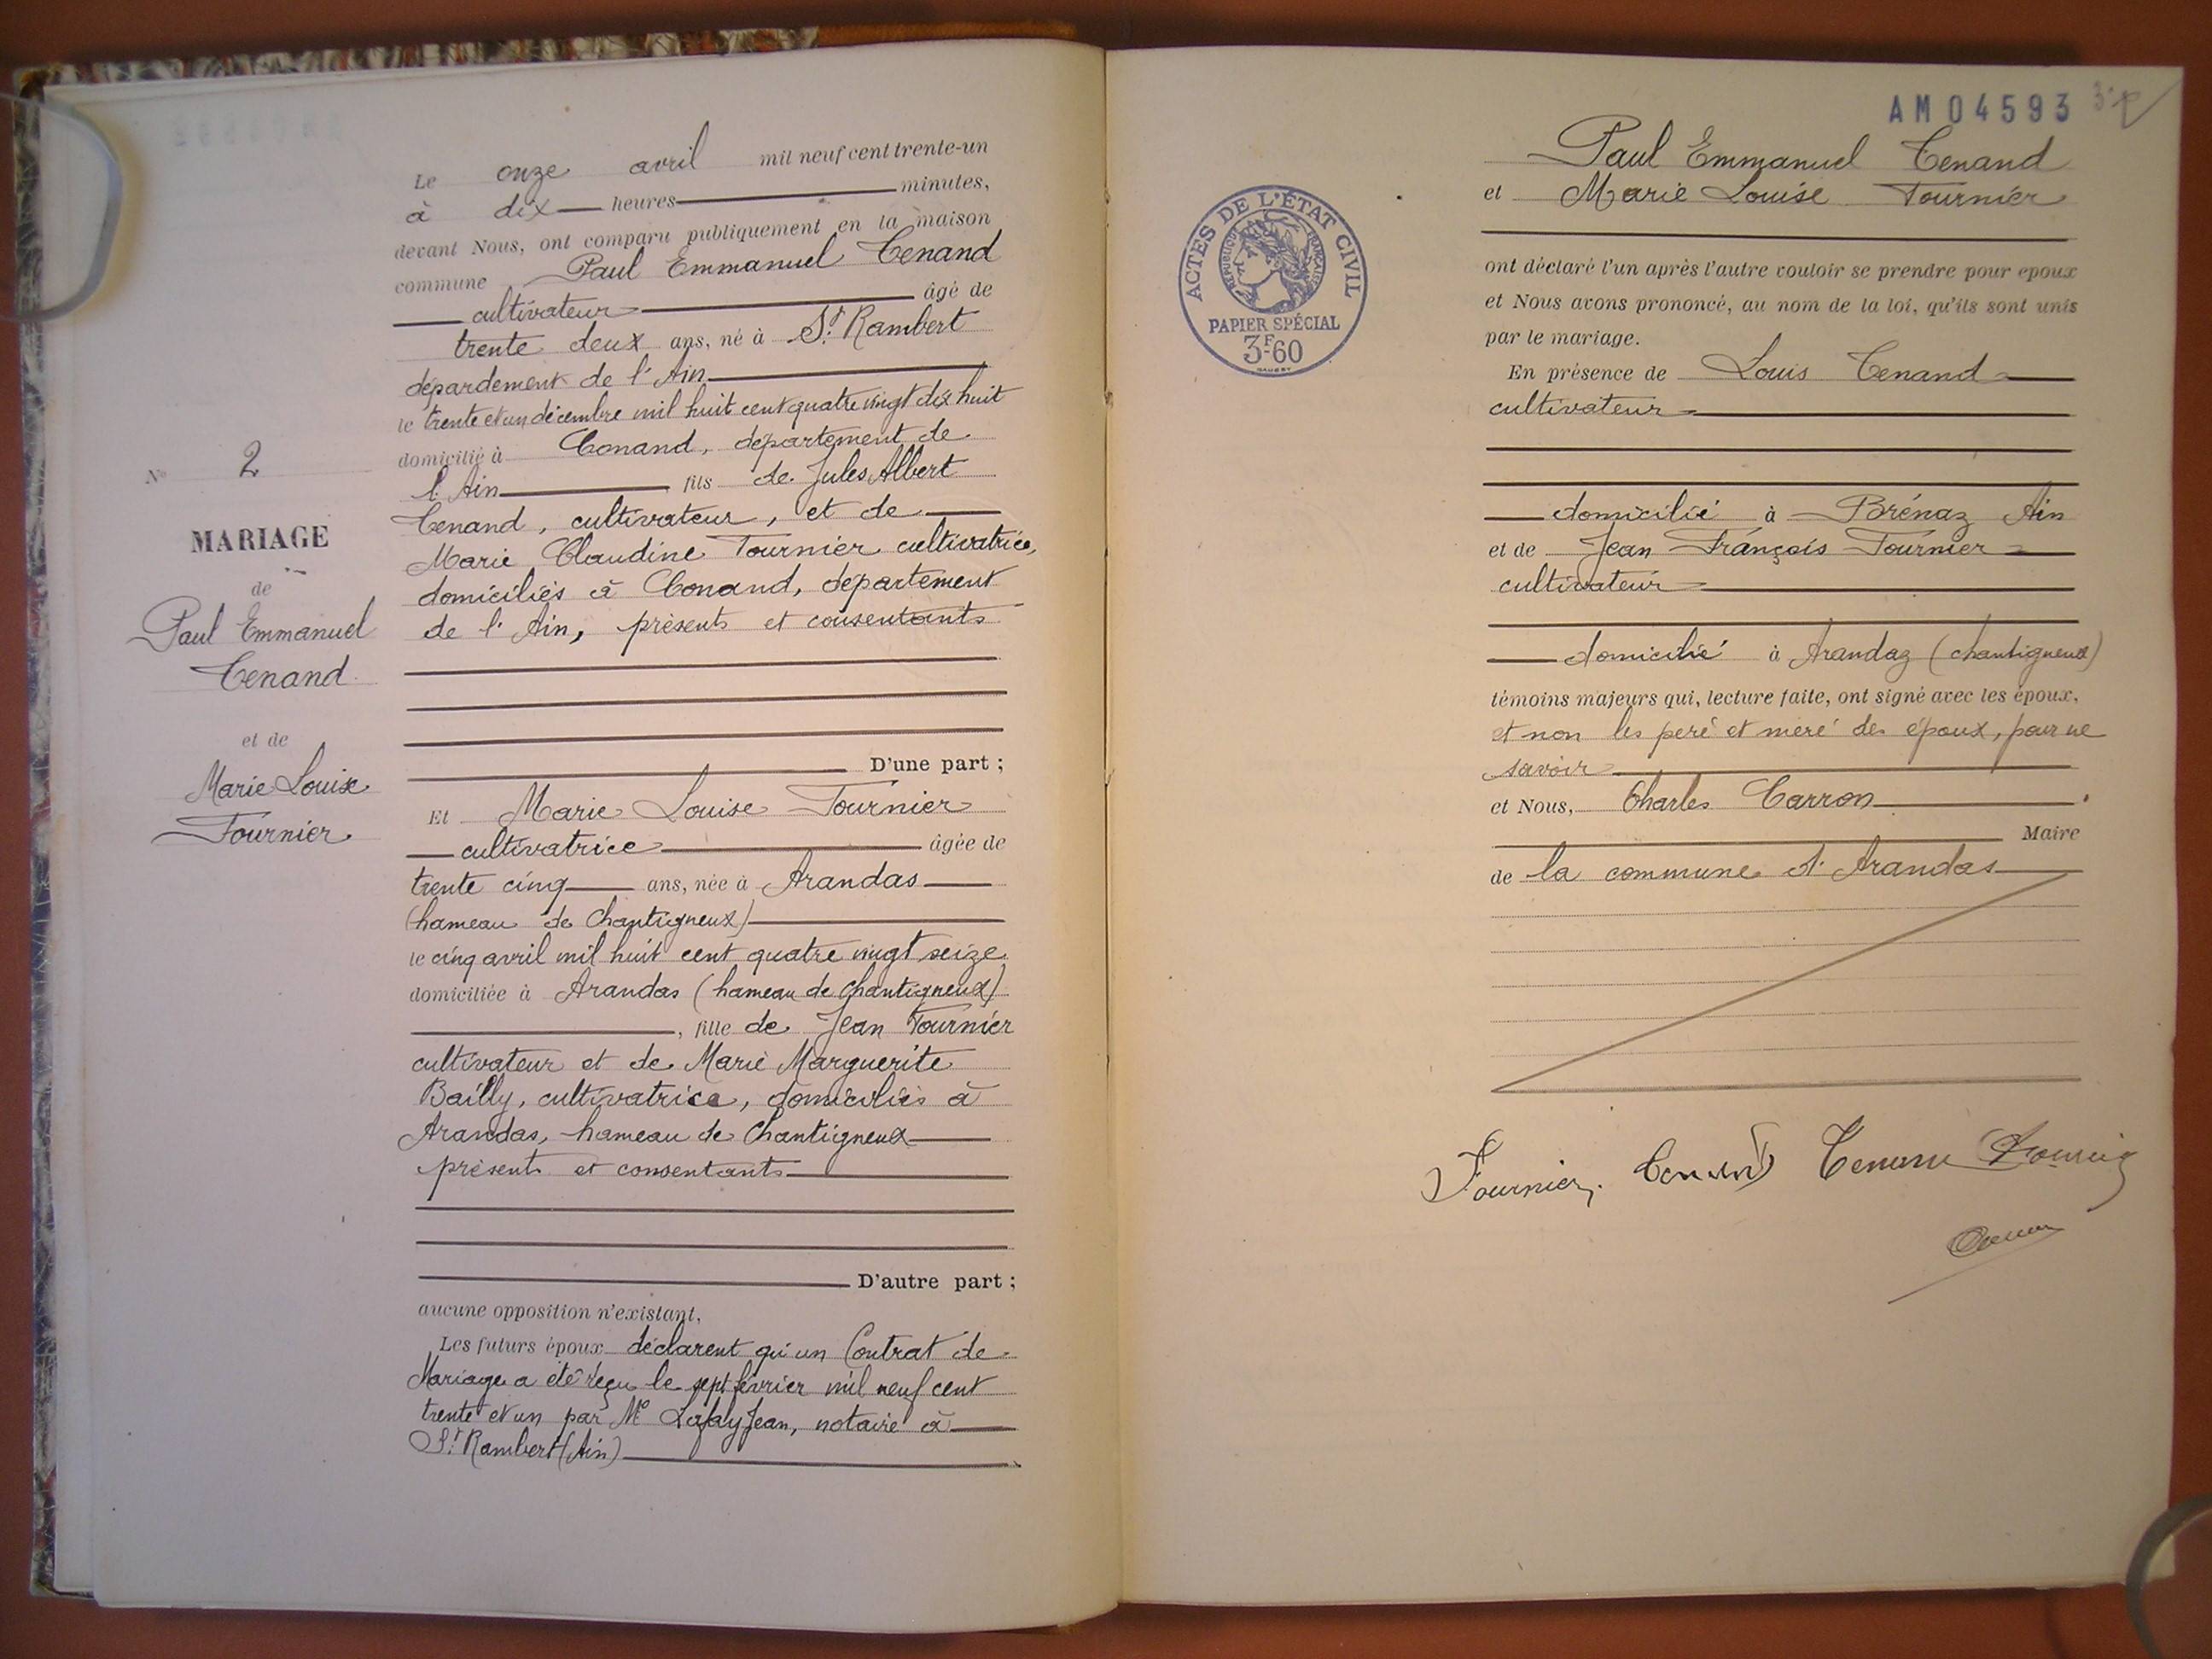 Le onze avril mil neuf cent trente-un
à dix heures minutes,
devant Nous, ont comparu publiquement en la maison
commune Paul Emmanuel Tenand
cultivateur âgé de
trente deux ans, né à St Rambert
départdement de l'Ain
le trente et un décembre mil huit cent quatre vingt dix huit
domicilié à Conand, département de
l'Ain fils de Jules Albert
Tenand, cultivateur, et de
Marie Claudine Tournier cultivatrice,
domiciliés à Conand, département
de l'Ain, présents et consentants
D'une part ;
N° 2
MARIAGE
de
Paul Emmanuel
Tenand
et de
Marie Louise
Tournier
Et Marie Louise Tournier
cultivatrice âgée de
trente cinq ans, née à Arandas
(hameau de Chantigneux)
le cinq avril mil huit cent quatre vingt seize
domiciliée à Arandas (hameau de Chantigneux)
, fille de Jean Tournier
cultivateur et de Marie Marguerite
Bailly, cultivatrice, domiciliés à
Arandas, hameau de Chantigneux
présents et consentants
D'autre part ;
aucune opposition n'existant,
Les futurs époux déclarent qu'un Contrat de
Mariage a été reçu le sept février mil neuf cent
trente et un par Me Lafay Jean, notaire à
St Rambert (Ain)
AM 04593
ACTES DE L'ÉTAT CIVIL
RÉPUBLIQUE FRANÇAISE
PAPIER SPÉCIAL
3F60
Paul Emmanuel Tenand
et Marie Louise Tournier
ont déclaré l'un après l'autre vouloir se prendre pour époux
et Nous avons prononcé, au nom de la loi, qu'ils sont unis
par le mariage.
En présence de Louis Tenand
cultivateur
domicilié à Brénaz Ain
et de Jean François Tournier
cultivateur
domicilié à Arandaz (chantigneux)
témoins majeurs qui, lecture faite, ont signé avec les époux,
et non les père et mère des époux, pour ne
savoir
et Nous, Charles Carron
Maire
de la commune d'Arandas
Tournier